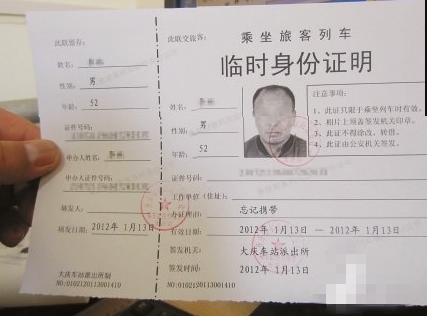 此联留存:
姓名:
性别: 男
年龄: 52
证件号码:
申办人姓名:
申办人证件号码:
填发人:
填发日期: 2012年 1月13日
大庆车站派出所制
NO:010212011300 1410
此联交旅客:
乘坐旅客列车
临时身份证明
姓名:
性别: 男
年龄: 52
证件号码:
工作单位(住址):
办证理由: 忘记携带
有效日期: 2012年 1月13日 — 2012年 1月13日
签发机关: 大庆车站派出所
签发时间: 2012年 1月13日
注意事项:
1、此证只限于乘坐列车时有效。
2、相片上须盖签发机关印章。
3、此证不得涂改、转借。
4、此证由公安机关签发。